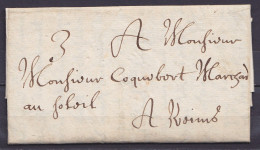 3 A Monsieur
Monsieur Coquebert Marchand
au soleil
A Reims